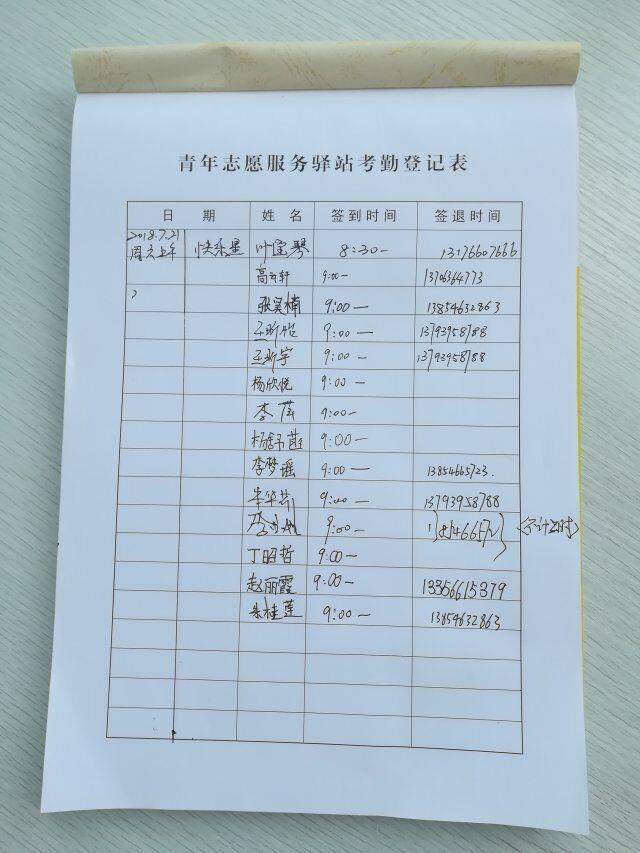 青年志愿服务驿站考勤登记表
日 期 姓 名 签到时间 签退时间
2018.7.21 周六上午 快乐星 叶宝琴 8:30— 13176607666
高云轩 9:00— 13706364773
张昊楠 9:00— 13854632863
王昕怡 9:00— 13793958788
王昕宇 9:00— 13793958788
杨欣悦 9:00—
李 9:00—
杨 9:00—
李梦瑶 9:00— 13854665723.
9:00— 13793958788
李 9:00—
丁昭哲 9:00—
赵丽霞 9:00— 13356615379
朱桂莲 9:00— 13854632863